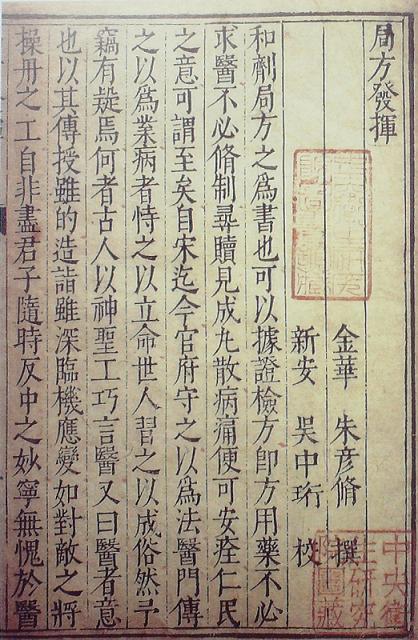 局方發揮
金華 朱彥脩 撰
新安 吳中珩 校
和劑局方之爲書也可以據證檢方即方用藥不必
求醫不必脩制尋贖見成丸散病痛便可安痊仁民
之意可謂至矣自宋迄今官府守之以爲法醫門傳
之以爲業病者恃之以立命世人習之以成俗然予
竊有疑焉何者古人以神聖工巧言醫又曰醫者意
也以其傳授雖的造詣雖深臨機應變如對敵之將
操舟之工自非盡君子隨時反中之妙寧無愧於醫